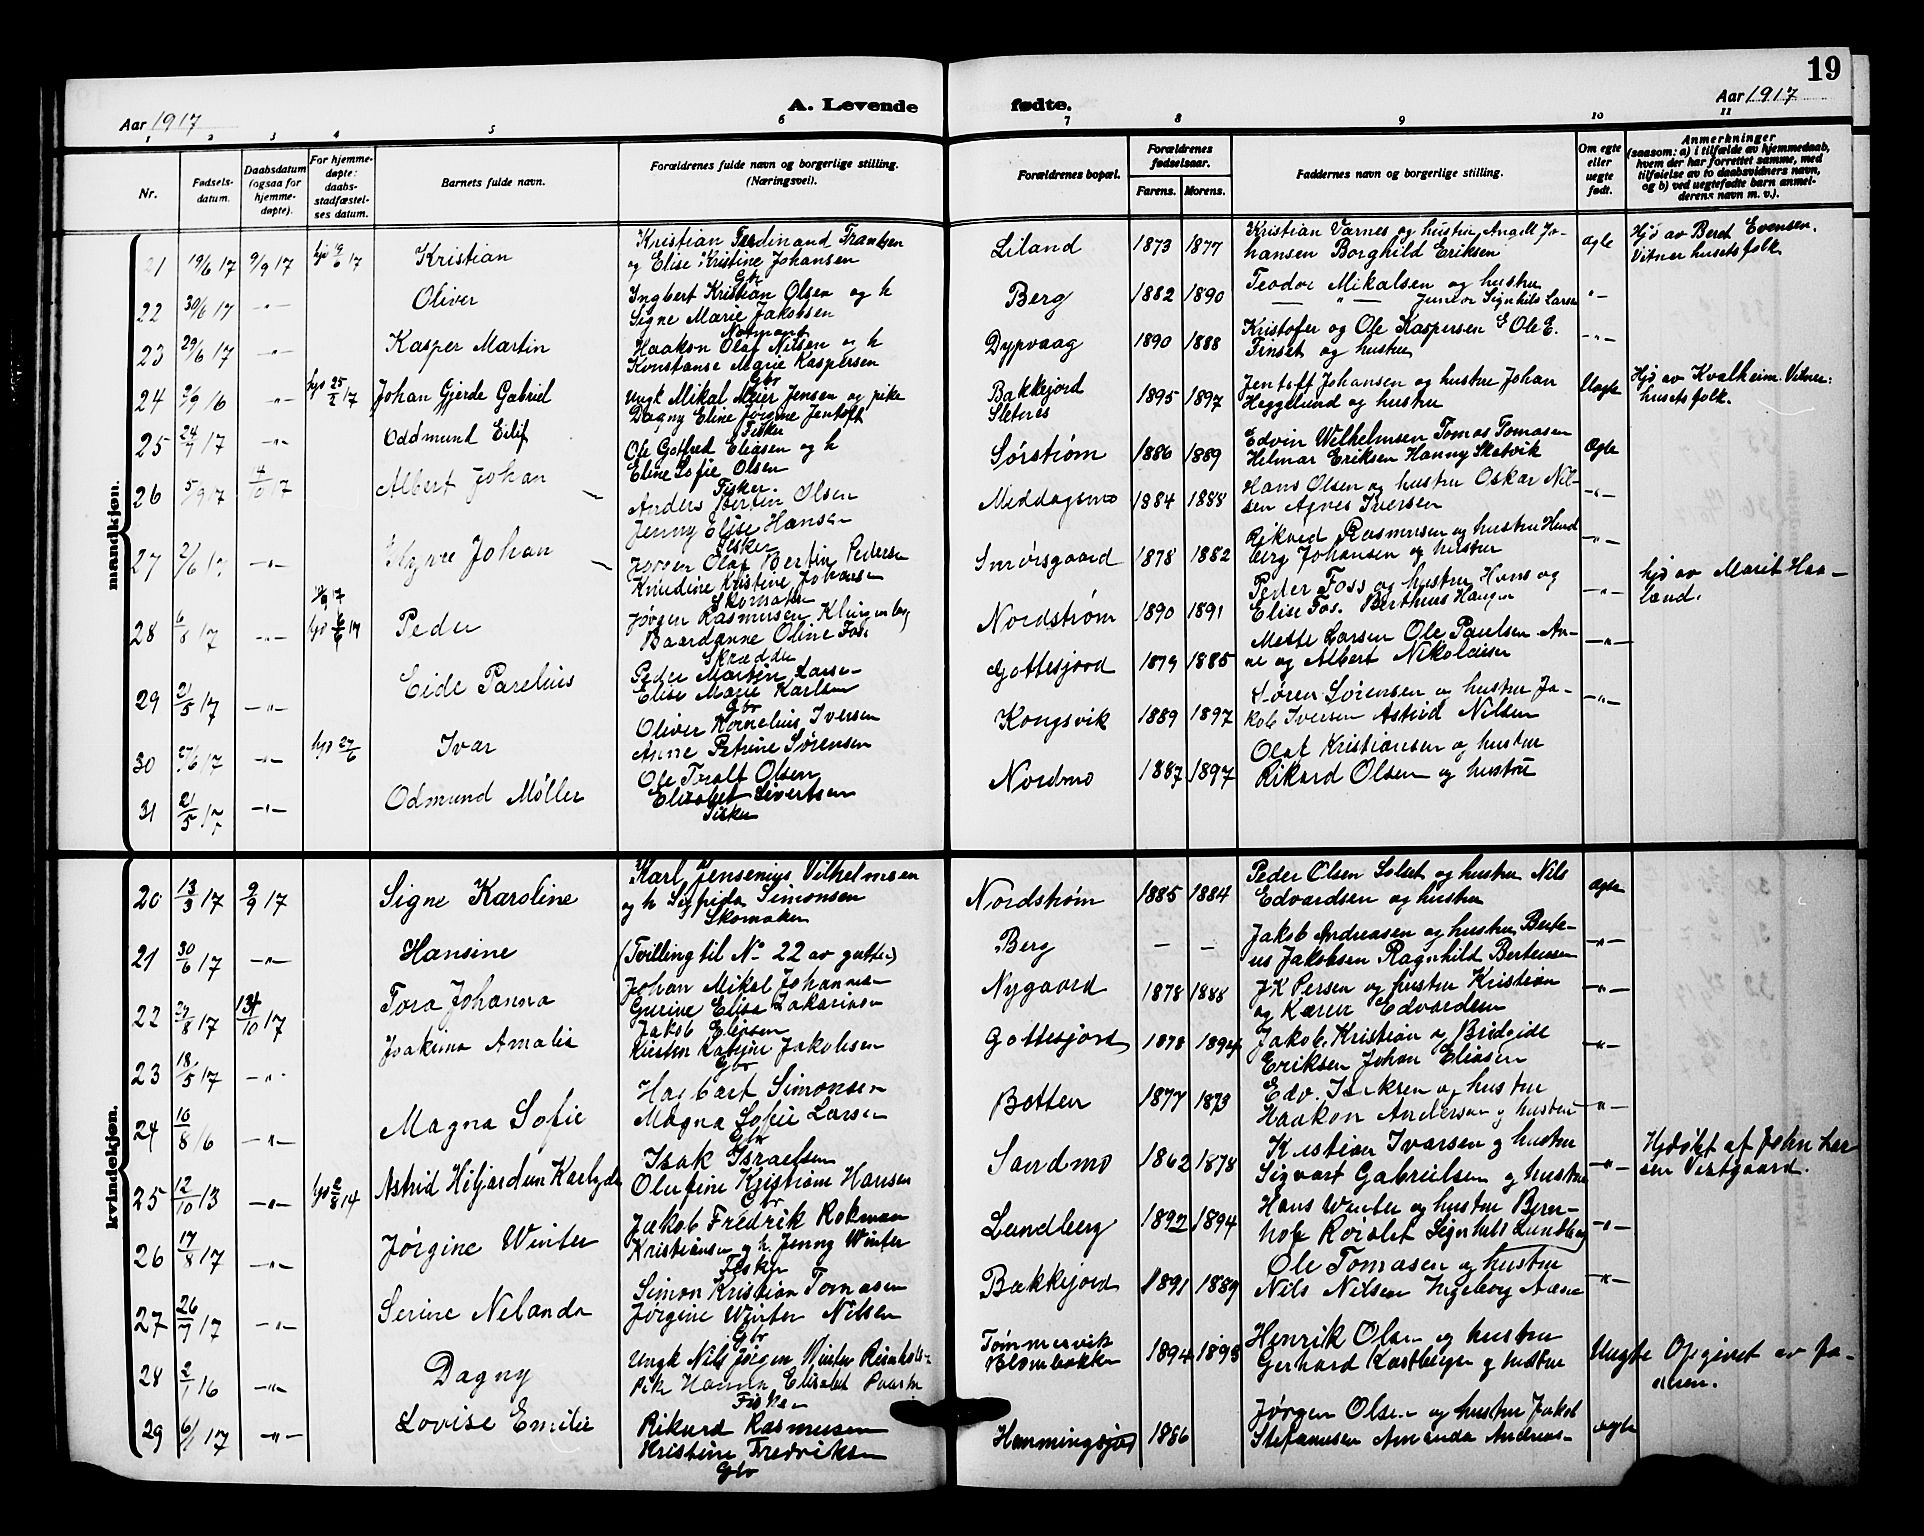 19
Aar 1917
A. Levende fødte.
Aar 1917
1 2 3 4 5 6 7 8 9 10 11
Nr.
Fødsels-
datum.
Daabsdatum
(ogsaa for
hjemme-
døpte).
For hjemme-
døpte:
daabs-
stadfæstel-
ses datum.
Barnets fulde navn.
Forældrenes fulde navn og borgerlige stilling.
(Næringsvei).
Forældrenes bopæl.
Forældrenes
fødselsaar.
Farens. Morens.
Faddernes navn og borgerlige stilling.
Om egte
eller
uegte
født.
Anmerkninger
(saasom: a) i tilfælde av hjemmedaab,
hvem der har forrettet samme, med
tilføielse av to daabsvidners navn,
og b) ved uegtefødte barn anmel-
derens navn m. v.).
mandkjøn.
21 19/6 17 9/9 17 Kristian
Kristian Ferdinand Frantzen
og Elise Kristine Johansen
Gbr
Liland 1873 1877
Kristian Varnes og hustru Angell Jo-
hansen Borghild Eriksen
ægte
Hjd av Beret Evensen.
Vitner husets folk
22 30/6 17 -"- Oliver
Ingbert Kristian Olsen og h
Signe Marie Jakobsen
Notmand
Berg 1882 1890
Teodor Mikalsen og hustru
— " — Junior Signhild Larsen
-"-
23 29/6 17 -"- Kasper Martin
Haakon Olaf Nilsen og h
Konstanse Marie Kaspersen
Gbr
Dypvaag 1890 1888
Kristofer og Ole Kaspersen Ole E.
Finset og hustru
-"-
24 2/9 16 -"- hjd 25/2 17 Johan Gjerde Gabriel
Ungk Mikal Meier Jensen og pike
Dagny Eline Jørgine Jentoft
Fisker
Bakkejord
Sletnes
1895 1897
Jentoft Johansen og hustru Johan
Heggelund og hustru
Uægte
Hjd av Kvalheim Vitner:
husets folk.
25 24/7 17 -"- Oddmund Eilif
Ole Gotfred Eliasen og h
Eline Sofie Olsen
Fisker.
Sørstrøm 1886 1889
Edvin Wilhelmsen Tomas Tomasen
Hilmar Eriksen Hanny Skatvik
Ægte
26 5/9 17 14/10 17 Albert Johan
Anders Bertin Olsen
Jenny Elise Hansen
Fisker
Middagsmo 1884 1888
Hans Olsen og hustru Oskar Nil-
sen Agnes Iversen
-"-
27 2/6 17 -"- Johan
Jørgen Olaf Bertin Pedersen
Knudine Kristine Johansen
Skomaker
Smørsgaard 1878 1882
Rikard Rasmusen og hustru
Johansen og hustru
-"-
28 6/8 17 -"- Peder
Jørgen Rasmusen Klingenberg
Baardanne Oline Foss
Skrædder
Nordstrøm 1890 1891
Peder Foss og hustru Hans og
Elise Fos. Bertheus Haugen
-"-
hjd av Marit Haa-
land.
29 21/5 17 -"- Eide Parelius
Peder Martin Larsen
Elise Marie Karlsen
Gbr
Gottesjord 1879 1885
Mette Larsen Ole Paulsen An-
ne og Albert Nikolaisen
-"-
30 27/6 17 -"- hjd 27/6 Ivar
Oliver Kornelius Iversen
Anne Petrine Sørensen
Kongsvik 1889 1897
Søren Sørensen og hustru Ja-
kob Iversen Astrid Nilsen
-"-
31 21/5 17 -"- Odmund Møller
Ole Tralt Olsen
Elisabet Sivertsen
Fisker
Nordmo 1887 1897
Olaf Kristiansen og hustru
Rikard Olsen og hustru
kvindekjøn.
20 13/3 17 9/9 17 Signe Karoline
Karl Jensenius Vilhelmsen
og h Sigfrida Simonsen
Skomaker
Nordstrøm 1885 1884
Peder Olsen Solset og hustru Nils
Edvardsen og hustru
ægte
21 30/6 17 -"- Hansine
(Tvilling til No 22 av gutter)
Berg — —
Jakob Andreasen og hustru Berte-
us Jakobsen Ragnhild Berteusen
-"-
22 27/8 17 14/10 17 Tora Johanna
Johan Mikal Johannesen
Gurine Elisa Zakariasen
Nygaard 1878 1888
J K Persen og hustru Kristian
og Karen Edvardsen
-"-
23 18/5 17 -"- Joakima Amalie
Jakob Eliasen
Kirsten Katrine Jakobsen
Gbr
Gottesjord 1878 1894
Jakob, Kristian og Bridgide
Eriksen Johan Eliasen
-"-
24 10/8 16 -"- Magna Sofie
Hagbart Simonsen
Magna Sofie Larsen
Gbr
Botten 1877 1873
Edv. Isaksen og hustru
Haakon Andersen og hustru
-"-
25 12/10 13 -"- hjd 2/8 14 Astrid Hiljardine Karlyda
Isak Israelsen
Olufine Kristiane Hansen
Gbr
Sandmo 1862 1878
Kristian Ivarsen og hustru
Sigvart Gabrielsen og hustru
-"-
Hjdøpt af John Lar
sen Vestgaard.
26 17/8 17 -"- Jørgine Winter
Jakob Fredrik Rokman
Kristiansen og h. Jenny Winter
Fisker
Lundberg 1892 1894
Hans Winter og hustru Bern-
hof Roialet Signhild Lundberg
-"-
27 26/7 17 -"- Serine Nelanda
Simon Kristian Tomasen
Jørgine Winter Nilsen
Gbr
Bakkejord 1891 1889
Ole Tomasen og hustru
Nils Nilsen Ingeborg Aasen
-"-
28 2/1 16 -"- Dagny
Ungk Nils Jørgen Winter
Pik Hanna Elisabet
Fisker
Tømmervik
Blombakken
1894 1893
Henrik Olsen og hustru
Gerhard Kastbergen og hustru
Uægte
Opgivet av fa-
deren.
29 6/1 17 -"- Lovise Emilie
Rikard Rasmusen
Kristine Fredriksen
Gbr
Hemmingsjord 1886
Jørgen Olsen og hustru Jakob
Stefanusen Amanda Andreas-
ægte